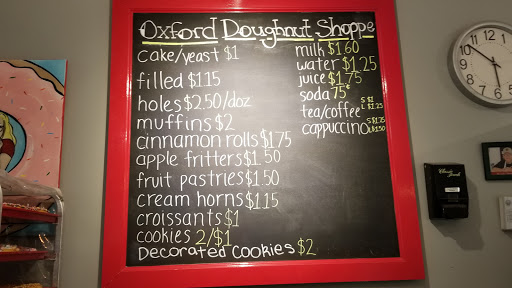 Oxford Doughnut Shoppe
cake/yeast $1
filled $1.15
holes $2.50/doz
muffins $2
cinnamon rolls $1.75
apple fritters $1.50
fruit pastries $1.50
cream horns $1.15
croissants $1
cookies 2/$1
Decorated Cookies $2
milk $1.60
water $1.25
juice $1.75
soda 75¢
tea/coffee S $1
L $1.25
cappuccino S $1.75